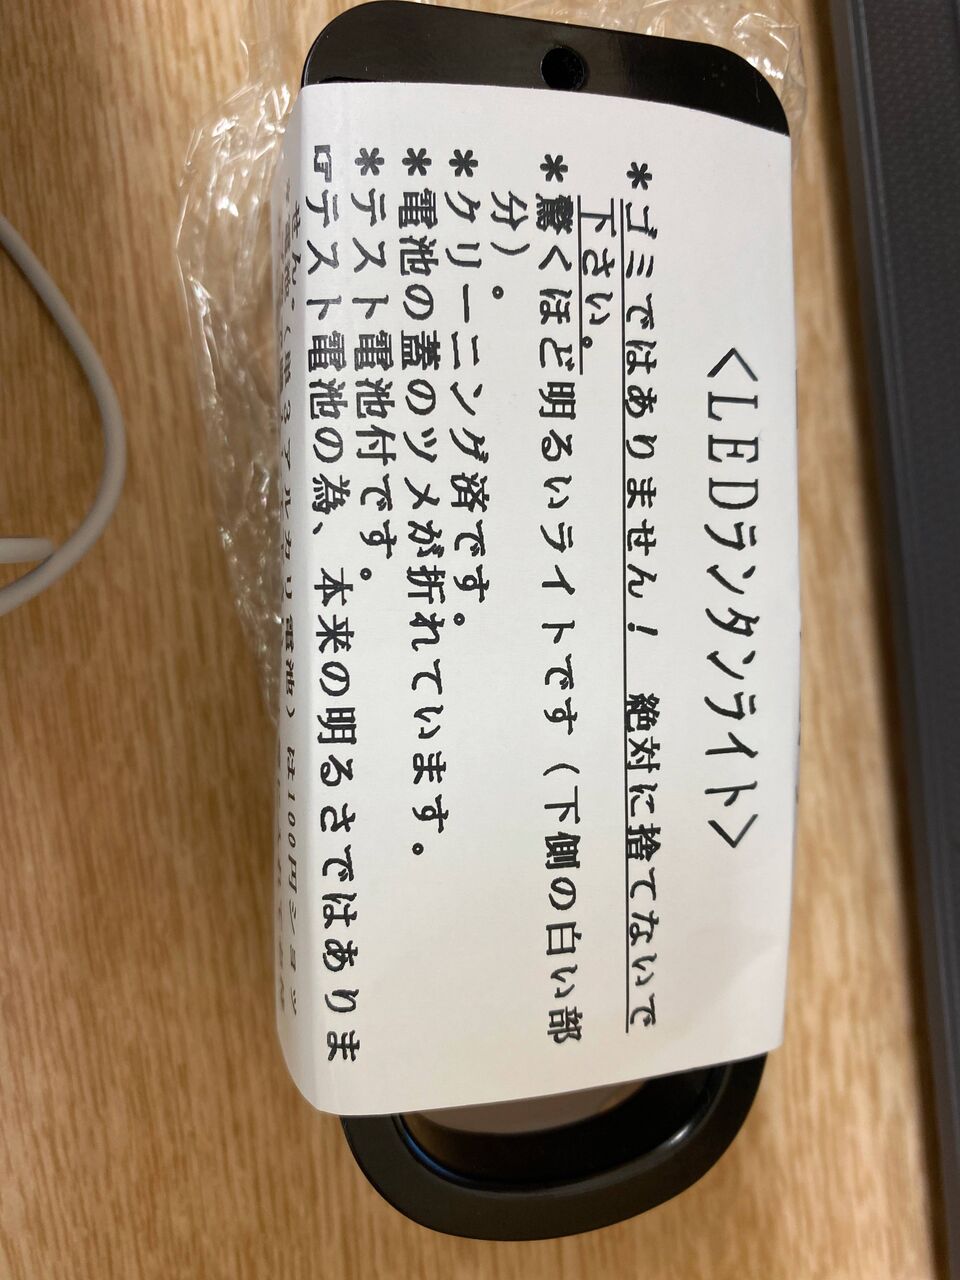 <LEDランタンライト>
*ゴミではありません! 絶対に捨てないで
下さい。
*驚くほど明るいライトです(下側の白い部
分)。
*クリーニング済です。
*電池の蓋のツメが折れています。
*テスト電池付です。
☞テスト電池の為、本来の明るさではありま
せん。(単3アルカリ電池)は100円ショッ